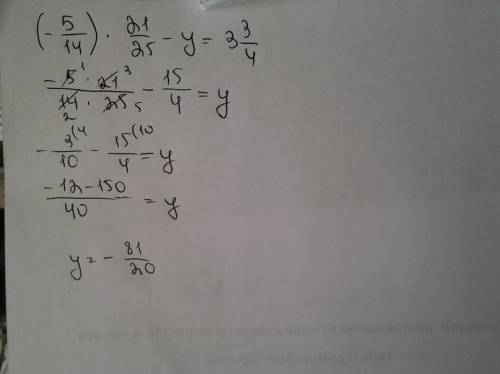 (-5/14) · 21/25 - y = 3 3/4
-5¹ · 21³ / 14₂ · 25₅ - 15/4 = y
-3⁽⁴/10 - 15⁽¹⁰/4 = y
-12-150 / 40 = y
y = -81/20